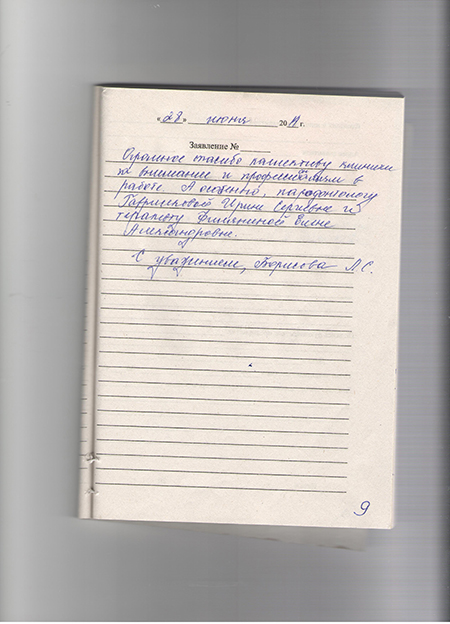 «28» июня 20 г.
Заявление №
Огромное спасибо коллективу клиники
за внимание и профессионализм в
работе. А особенно пародонтологу
Гавриловой Ирине Сергеевне и
терапевту Елене
Александровне.
С уважением, Борисова Л.С.
9